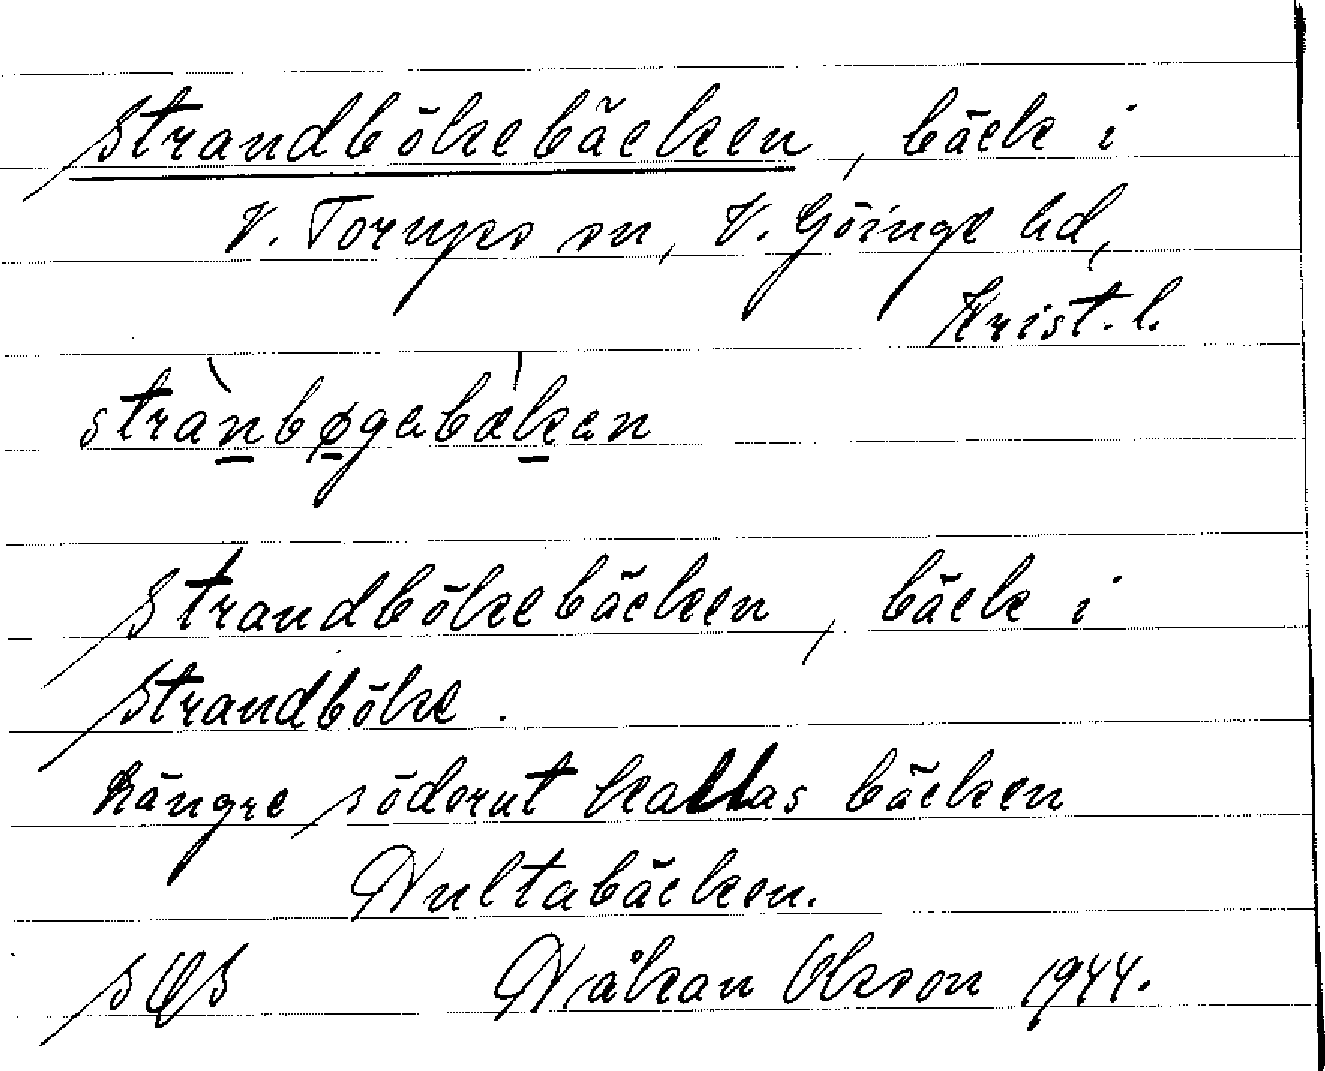 Strandbökebäcken, bäck i
V. Torups sn, V. Göinge hd,
Krist. l.
strànbøgabækan
Strandbökebäcken, bäck i
Strandböke.
Längre söderut kallas bäcken
Hultabäcken.
SOS Håkan Olsson 1944.